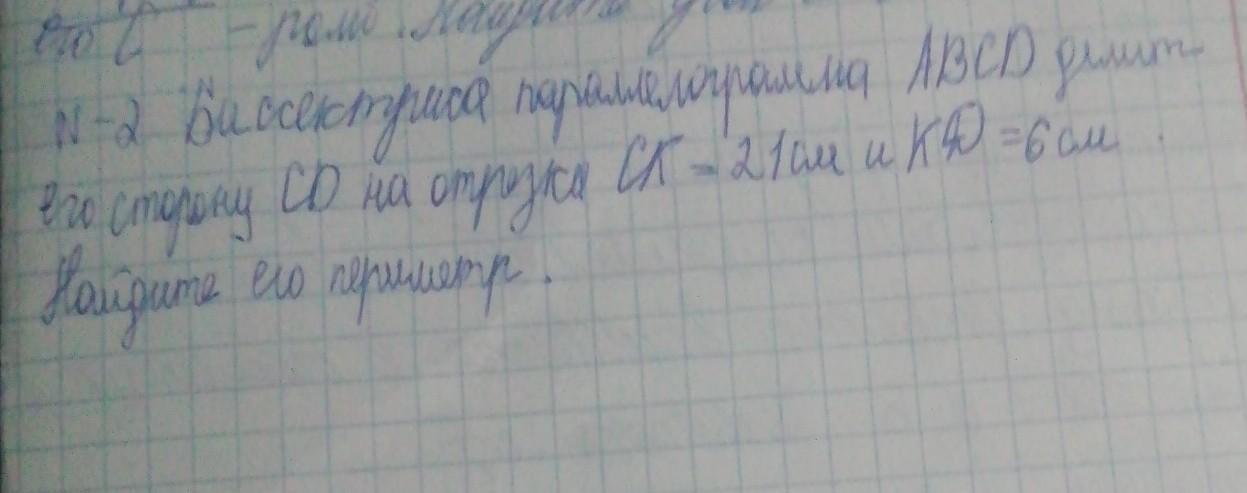 его
N-2 Биссектриса параллелограмма ABCD делит
его сторону CD на отрезка CK = 21см и KD = 6 см .
Найдите его периметр .